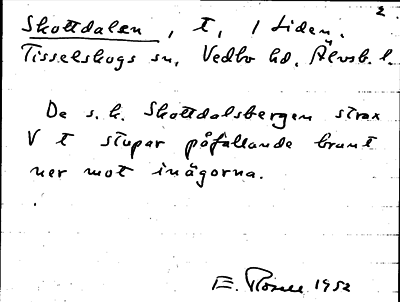 2
Skottdalen, t, / Liden.
Tisselskogs sn, Vedbo hd, Älvsb. l.
De s. k. Skottdalsbergen strax
V t stupar påfallande brant
ner mot inägorna.
E. Rosell 1952